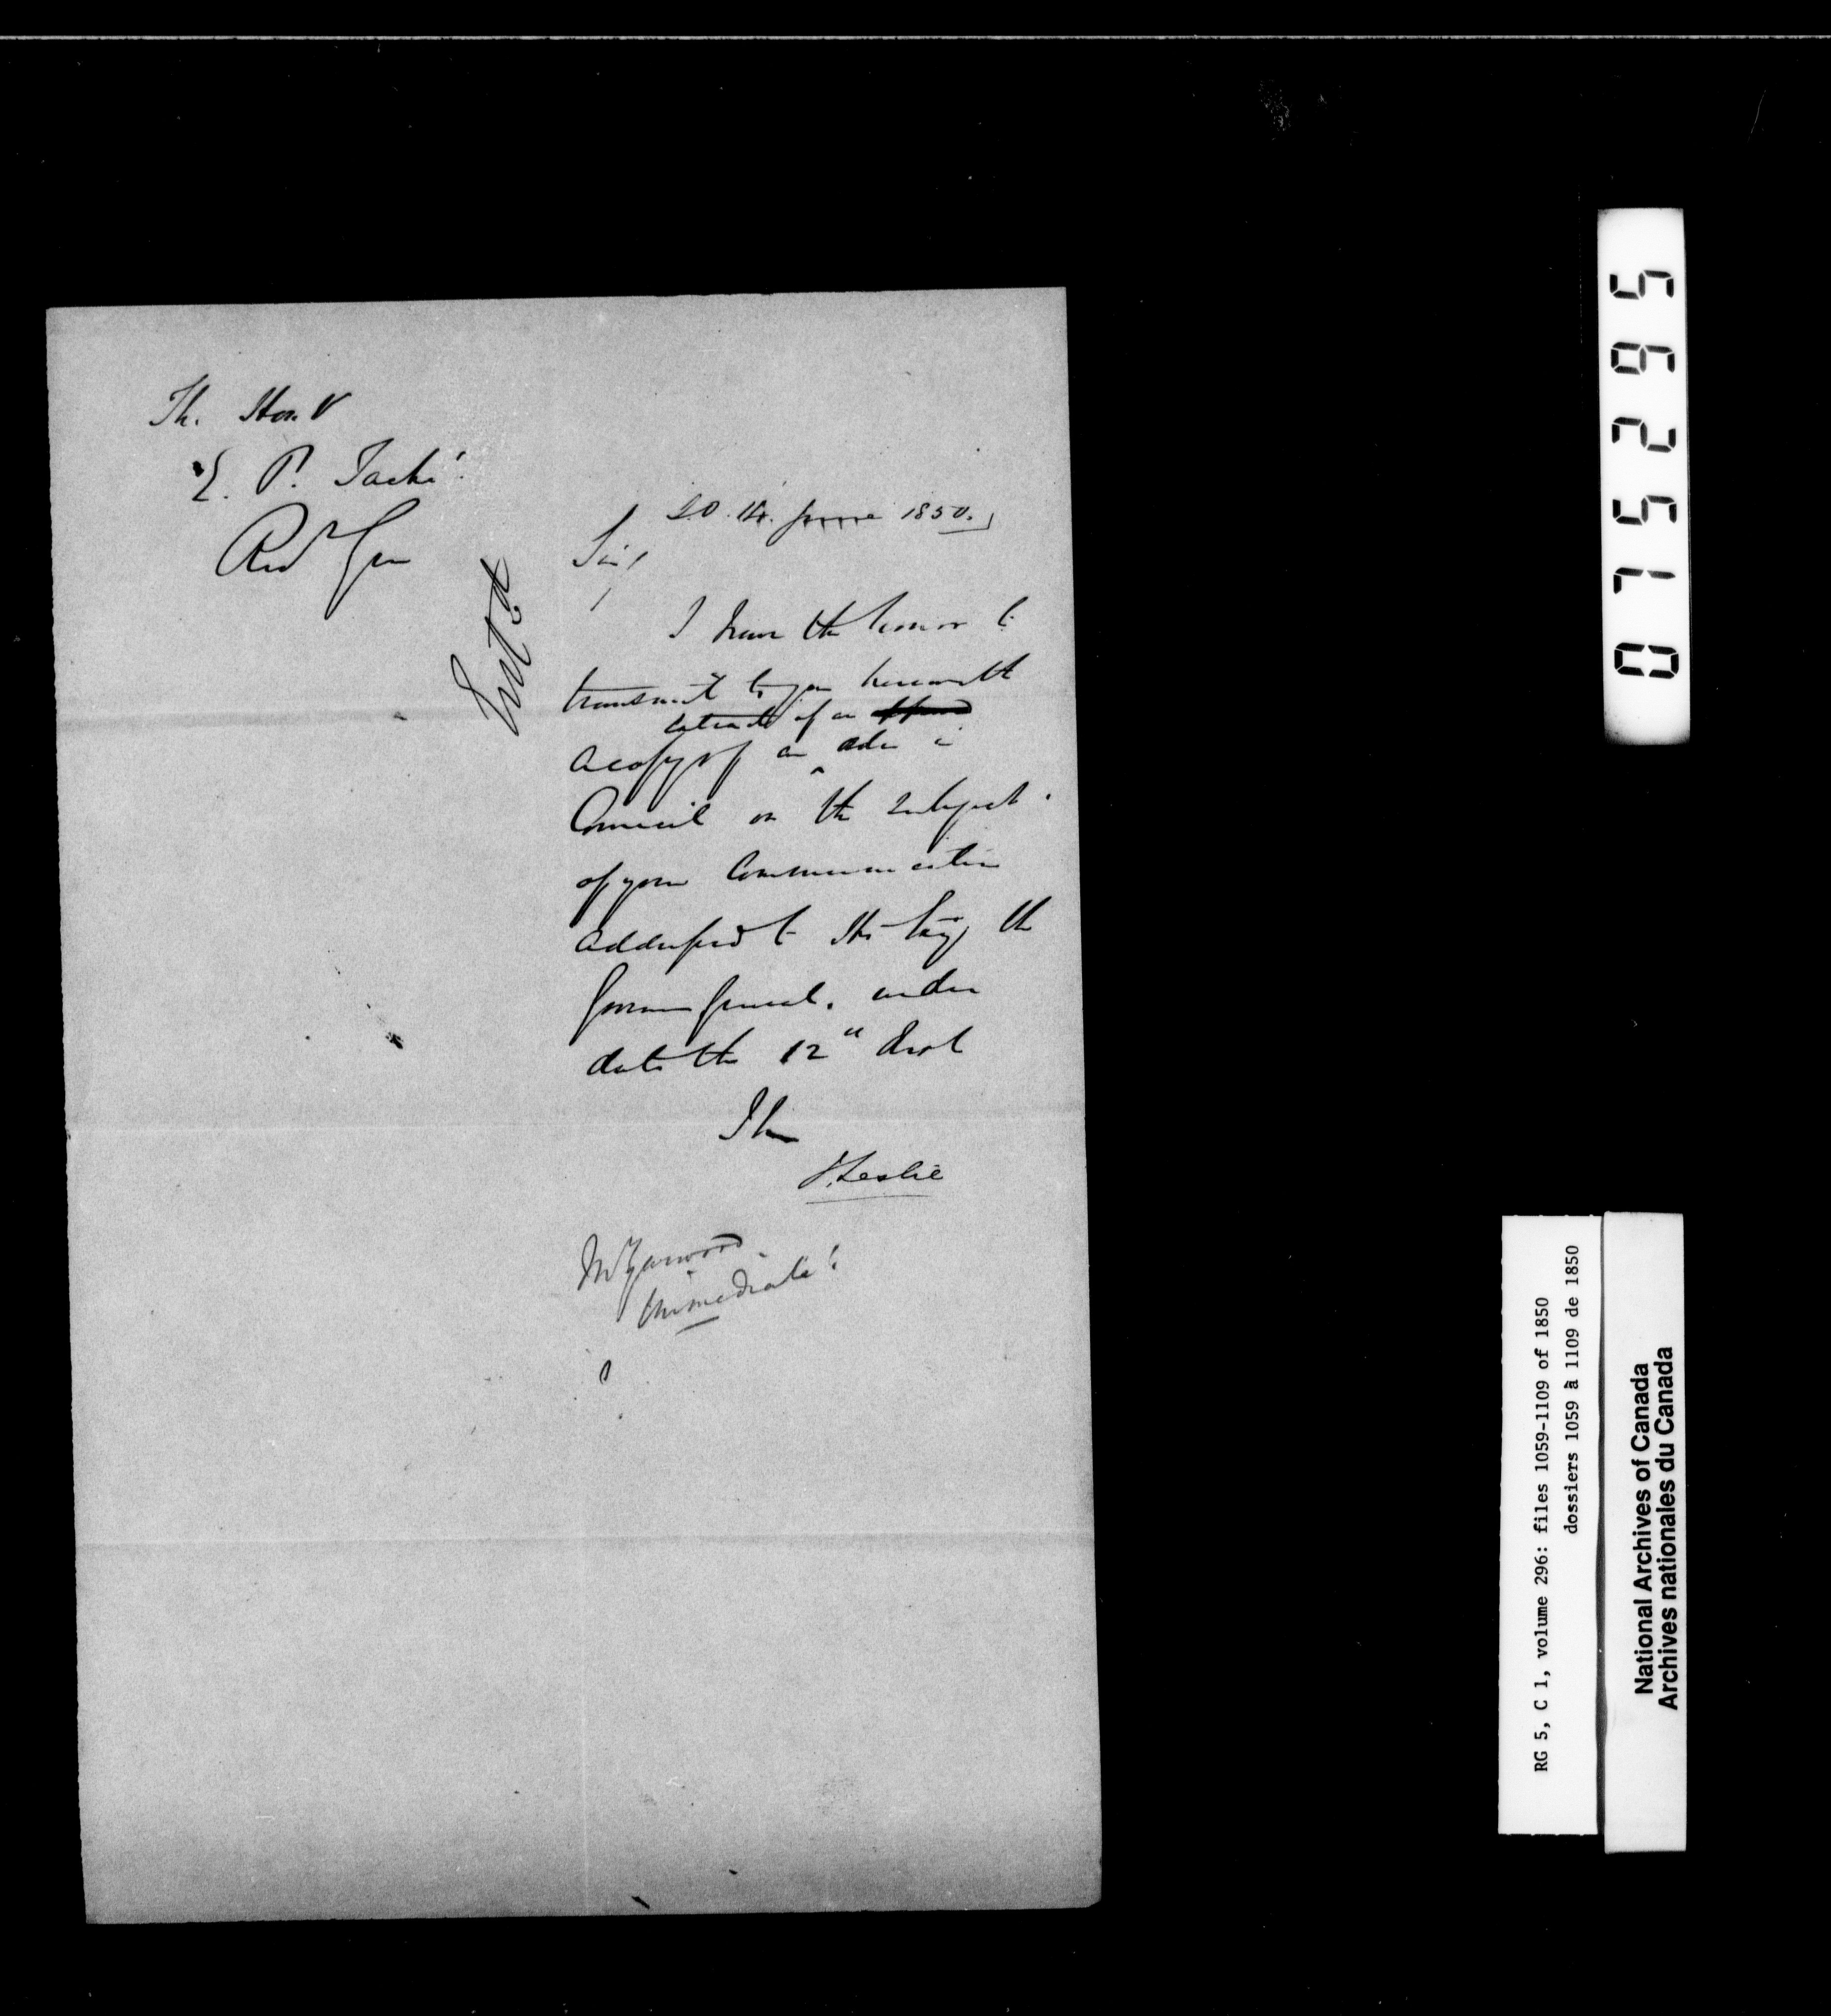 The Honl
E. P. Taché
Recr Gen
Entd
S.O. 14. June 1850.
Sir,
I have the honor to
transmit to you herewith
extract of an
a copy of an order in
Council on the subject
of your Communication
addressed to His Exy the
Governor General, under
date the 12th Inst
I h
J. Leslie
Mr Yarwood
Immediate!
075295
RG 5, C 1, volume 296: files 1059-1109 of 1850
dossiers 1059 à 1109 de 1850
National Archives of Canada
Archives nationales du Canada